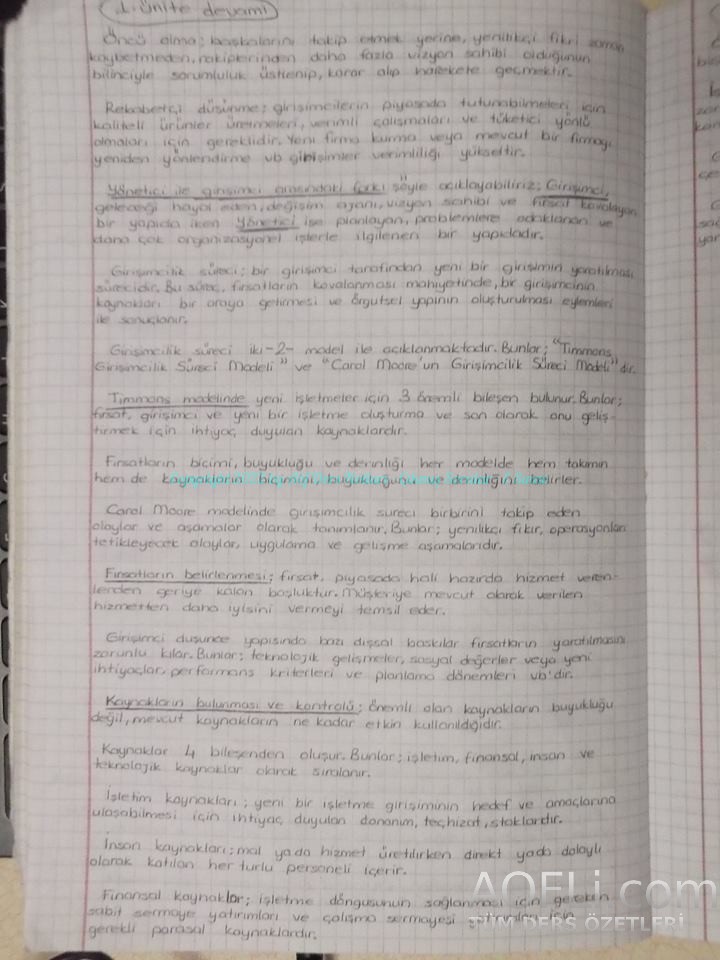 1. ünite devamı
Öncü olma; başkalarını takip etmek yerine, yenilikçi fikri zaman
kaybetmeden, rakiplerinden daha fazla vizyon sahibi olduğunun
bilinciyle sorumluluk üstlenip, karar alıp harekete geçmektir.
Rekabetçi düşünme; girişimcilerin piyasada tutunabilmeleri için
kaliteli ürünler üretmeleri, verimli çalışmaları ve tüketici yönlü
olmaları için gereklidir. Yeni firma kurma veya mevcut bir firmayı
yeniden yönlendirme vb girişimler verimliliği yükseltir.
Yönetici ile girişimci arasındaki farkı şöyle açıklayabiliriz; Girişimci,
geleceği hayal eden, değişim ajanı, vizyon sahibi ve fırsat kovalayan
bir yapıda iken Yönetici ise planlayan, problemlere odaklanan ve
daha çok organizasyonel işlerle ilgilenen bir yapıdadır.
Girişimcilik süreci; bir girişimci tarafından yeni bir girişimin yaratılması
sürecidir. Bu süreç, fırsatların kovalanması mahiyetinde, bir girişimcinin
kaynakları bir araya getirmesi ve örgütsel yapının oluşturulması eylemleri
ile sonuçlanır.
Girişimcilik süreci iki-2- model ile açıklanmaktadır. Bunlar; "Timmons
Girişimcilik Süreci Modeli" ve "Carol Moore'un Girişimcilik Süreci Modeli"dir.
Timmons modelinde yeni işletmeler için 3 önemli bileşen bulunur. Bunlar;
fırsat, girişimci ve yeni bir işletme oluşturma ve son olarak onu geliş-
tirmek için ihtiyaç duyulan kaynaklardır.
Fırsatların biçimi, büyüklüğü ve derinliği her modelde hem takımın
hem de kaynakların biçimini, büyüklüğünü ve derinliğini belirler.
Carol Moore modelinde girişimcilik süreci birbirini takip eden
olaylar ve aşamalar olarak tanımlanır. Bunlar; yenilikçi fikir, operasyonları
tetikleyecek olaylar, uygulama ve gelişme aşamalarıdır.
Fırsatların belirlenmesi; fırsat, piyasada hali hazırda hizmet veren-
lerden geriye kalan boşluktur. Müşteriye mevcut olarak verilen
hizmetten daha iyisini vermeyi temsil eder.
Girişimci düşünce yapısında bazı dışsal baskılar fırsatların yaratılmasını
zorunlu kılar. Bunlar; teknolojik gelişmeler, sosyal değerler veya yeni
ihtiyaçlar, performans kriterleri ve planlama dönemleri vb'dir.
Kaynakların bulunması ve kontrolü; önemli olan kaynakların büyüklüğü
değil, mevcut kaynakların ne kadar etkin kullanıldığıdır.
Kaynaklar 4 bileşenden oluşur. Bunlar; işletim, finansal, insan ve
teknolojik kaynaklar olarak sıralanır.
İşletim kaynakları; yeni bir işletme girişiminin hedef ve amaçlarına
ulaşabilmesi için ihtiyaç duyulan donanım, teçhizat, stoklardır.
İnsan kaynakları; mal yada hizmet üretilirken direkt yada dolaylı
olarak katılan her türlü personeli içerir.
Finansal kaynaklar; işletme döngüsünün sağlanması için gereken
sabit sermaye yatırımları ve çalışma sermayesi yatırımları için
gerekli parasal kaynaklardır.
AOFLi.com
TÜM DERS ÖZETLERİ